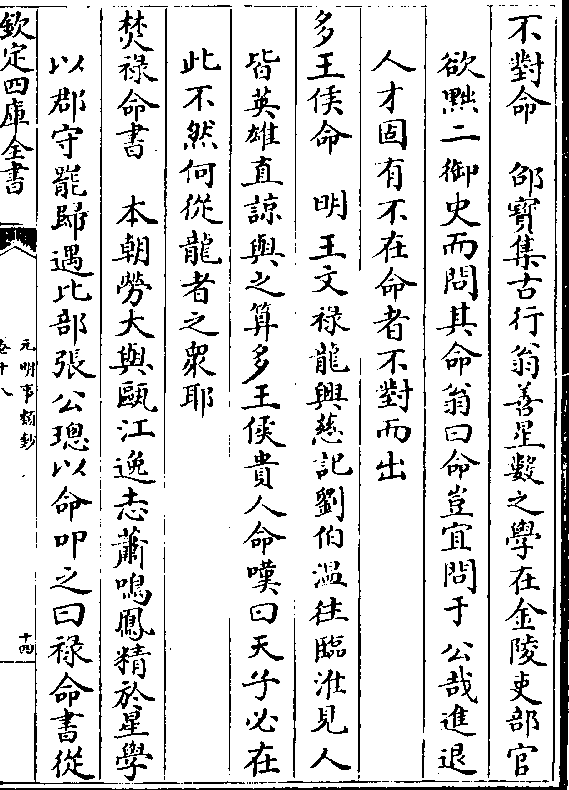 不對命　邵寳集古行翁善星數之學在金陵吏部官
欲黜二御史而問其命翁曰命豈宜問于公哉進退
人才固有不在命者不對而出
多王侯命　明王文禄龍興慈記劉伯溫往臨淮見人
皆英雄直諒與之算多王侯貴人命嘆曰天子必在
此不然何從龍者之衆耶
焚祿命書　本朝勞大與甌江逸志蕭鳴鳳精於星學
以郡守罷歸遇比部張公璁以命叩之曰祿命書從
欽定四庫全書
元明事類鈔
卷十八
十四